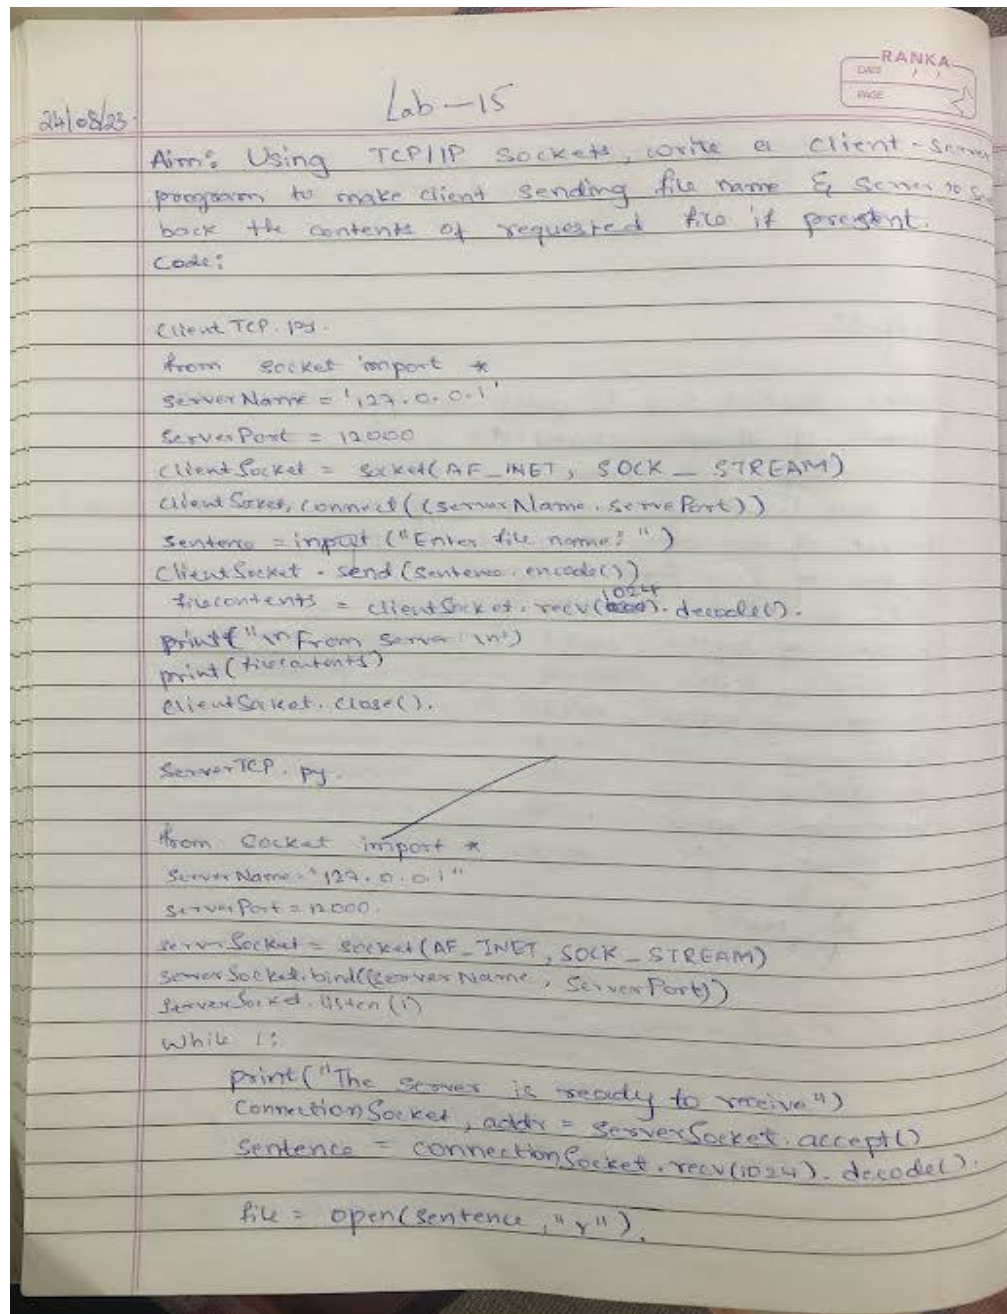 RANKA
DATE / /
PAGE
24/08/23
Lab - 15
Aim: Using TCP/IP Sockets, write a client-server
program to make client sending file name & server to
back the contents of requested file if present.
Code:
Client TCP.py.
from socket import *
serverName = '127.0.0.1'
serverPort = 12000
clientSocket = socket(AF_INET, SOCK_STREAM)
clientSocket.connect((serverName, serverPort))
sentence = input("Enter file name: ")
clientSocket.send(sentence.encode())
filecontents = clientSocket.recv(1024).decode().
print("\n From Server \n")
print(filecontents)
clientSocket.close().
ServerTCP.py.
from socket import *
serverName = "127.0.0.1"
serverPort = 12000.
serverSocket = socket(AF_INET, SOCK_STREAM)
serverSocket.bind((serverName, serverPort))
serverSocket.listen(1)
while 1:
print("The server is ready to receive")
connectionSocket, addr = serverSocket.accept()
sentence = connectionSocket.recv(1024).decode().
file = open(sentence, "r").